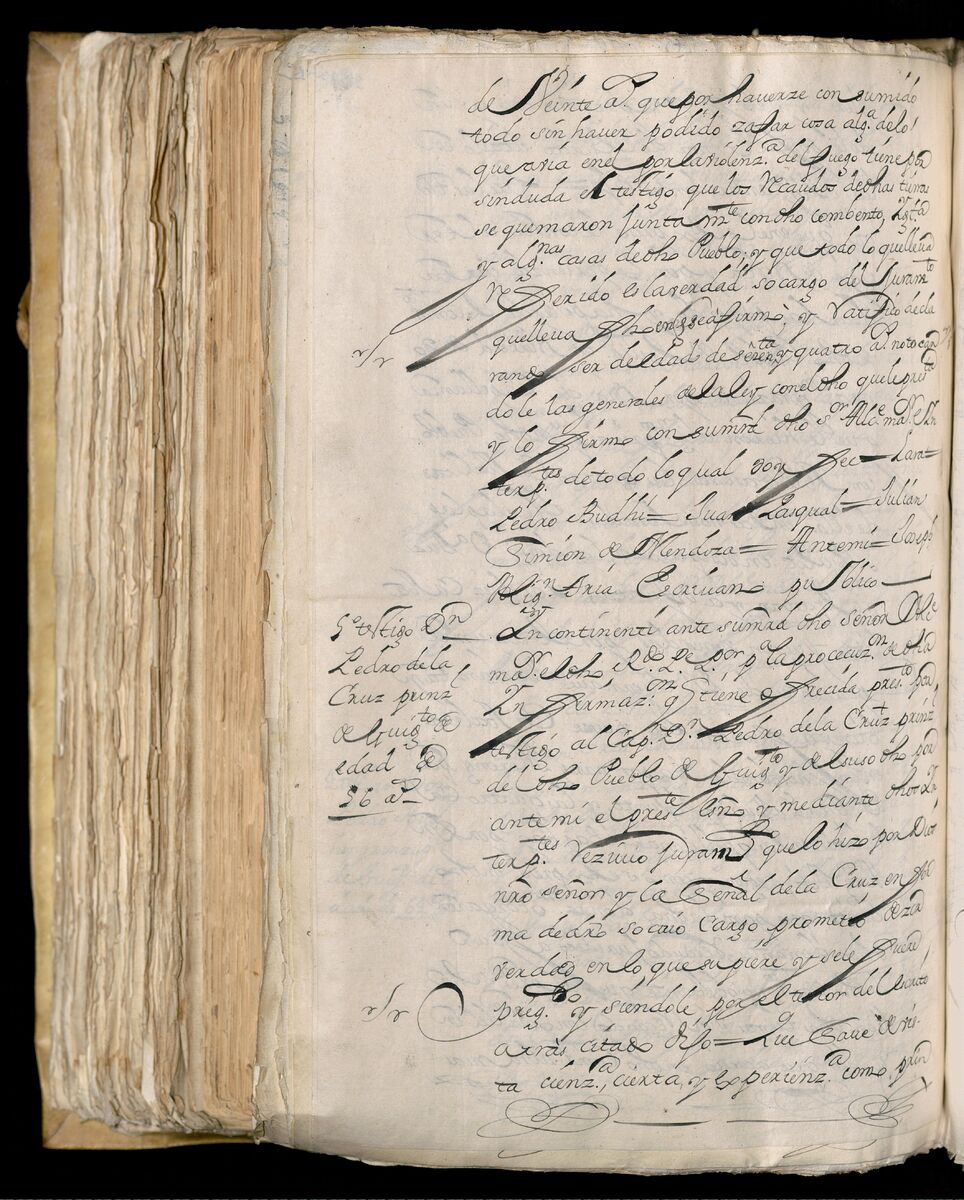 de Veinte a.s que por hauerze consumido
todo sin hauer podido zafar cosa alg.a de lo
que auia en el por la violenz.a del fuego tiene por
sin duda el testigo que los Recaudos de dhas tierras
se quemaron junta m.te con dho combento,
y alg.nas casas de dho Pueblo; y que todo lo que lleua
Referido es la verdad so cargo del Juram.to
que lleua fho en q se afirmò, y Ratificò decla
rando ser de edad de y quatro a.s no tocan
dole las generales de la ley con el dho que le pres.ta
y lo firmò con sumrd dho s.or Alc.e ma.r e Yn
terp.tes de todo lo qual doy fee = Lara =
Pedro Budhi = Juan Pasqual = Julian
Simion de Mendoza = Antemi = Joseph
Mig.n Aria Escriuano publico —
5.o testigo D.n
Pedro de la
Cruz prinz
de Guig.to de
edad de
56 a.s
Yn continenti ante sumrd dho señor Alc.e
ma.r el dho R.do P.e P.or p.a la procecuz.n de dha
Ynformaz.on q tiene ofrecida pres.to por
testigo al Cap.n D.n Pedro de la Cruz prinz
del dho Pueblo de Guig.to y de el suso dho por
antemi el pres.te Esño y mediante dhos Yn
terp.tes Rezivio Juram.to que lo hizo por Dios
nro señor y la Señal de la Cruz en for
ma de dro so cuio cargo prometiò dezir
verdad en lo que supiere y se le fuere
preg.do y siendole por el tenor del escrito
atràs citado dijo = Que saue de vis
ta cienz.a, cierta, y experienz.a como prin